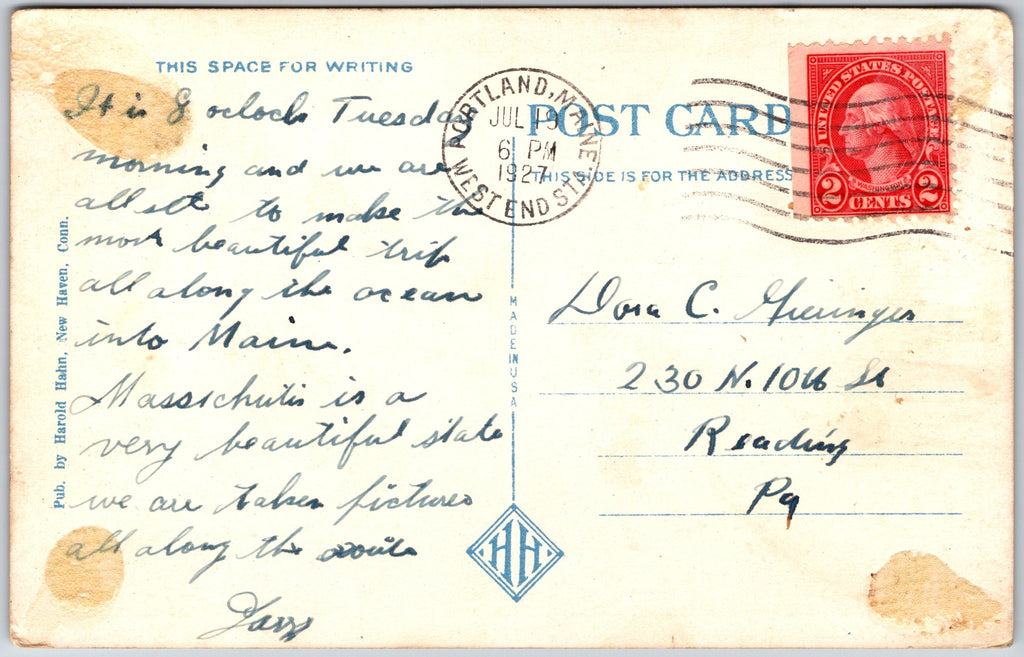 THIS SPACE FOR WRITING
It is 8 oclock Tuesday
morning and we are
all set to make the
most beautiful trip
all along the ocean
into Maine.
Massichutis is a
very beautiful state
we are taken pictures
all along the route
Pub. by Harold Hahn, New Haven, Conn.
MADE IN USA
HH
PORTLAND, MAINE
JUL 19
6 PM
1927
WEST END STA.
POST CARD
THIS SIDE IS FOR THE ADDRESS
UNITED STATES POSTAGE
WASHINGTON
2 CENTS 2
Dora C.
230 N. 10th St
Reading
Pa